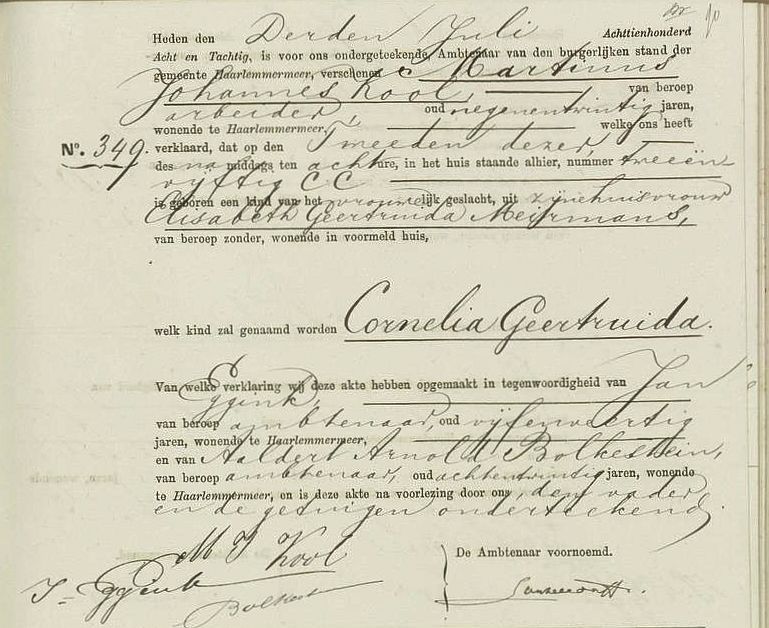 Heden den Derden Juli Achttienhonderd
Acht en Tachtig, is voor ons ondergeteekende, Ambtenaar van den burgerlijken stand der
gemeente Haarlemmermeer, verschenen Martinus
Johannes Kool, van beroep
arbeider, oud negenentwintig jaren,
wonende te Haarlemmermeer, welke ons heeft
No. 349. verklaard, dat op den Tweeden dezer,
des na middags ten acht ure, in het huis staande alhier, nummer tweeën
vijftig CC
is geboren een kind van het vrouwelijk geslacht, uit zijne huisvrouw
Elisabeth Geertruida Meijrmans,
van beroep zonder, wonende in voormeld huis,
welk kind zal genaamd worden Cornelia Geertruida.
Van welke verklaring wij deze akte hebben opgemaakt in tegenwoordigheid van Jan
Eggink,
van beroep ambtenaar, oud vijfenveertig
jaren, wonende te Haarlemmermeer,
en van Aaldert Arnold Bolkestein,
van beroep ambtenaar, oud achtentwintig jaren, wonende
te Haarlemmermeer, en is deze akte na voorlezing door ons, den vader
en de getuigen onderteekend.
M J Kool
De Ambtenaar voornoemd.
J Eggink
Bolkest